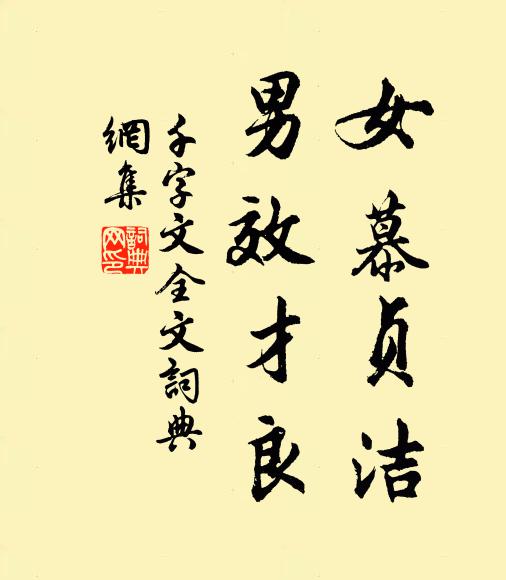 女慕贞洁
男效才良
千字文全文詞典
網集
詞典网印